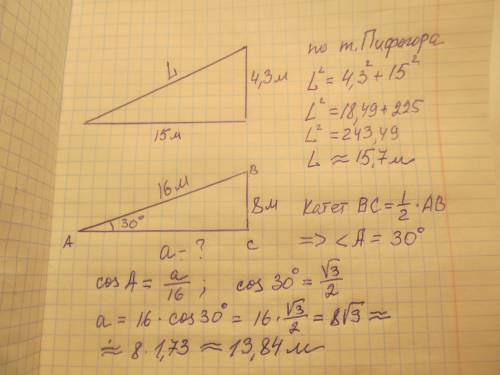 L
4,3м
15м
по т. Пифагора
L² = 4,3² + 15²
L² = 18,49 + 225
L² = 243,49
L ≈ 15,7м
B
16м
30°
8м
A
C
a - ?
Катет BC = 1/2 · AB
=> <A = 30°
cos A = a/16 ; cos 30° = √3/2
a = 16 · cos 30° = 16 · √3/2 = 8√3 ≈
≈ 8 · 1,73 ≈ 13,84м